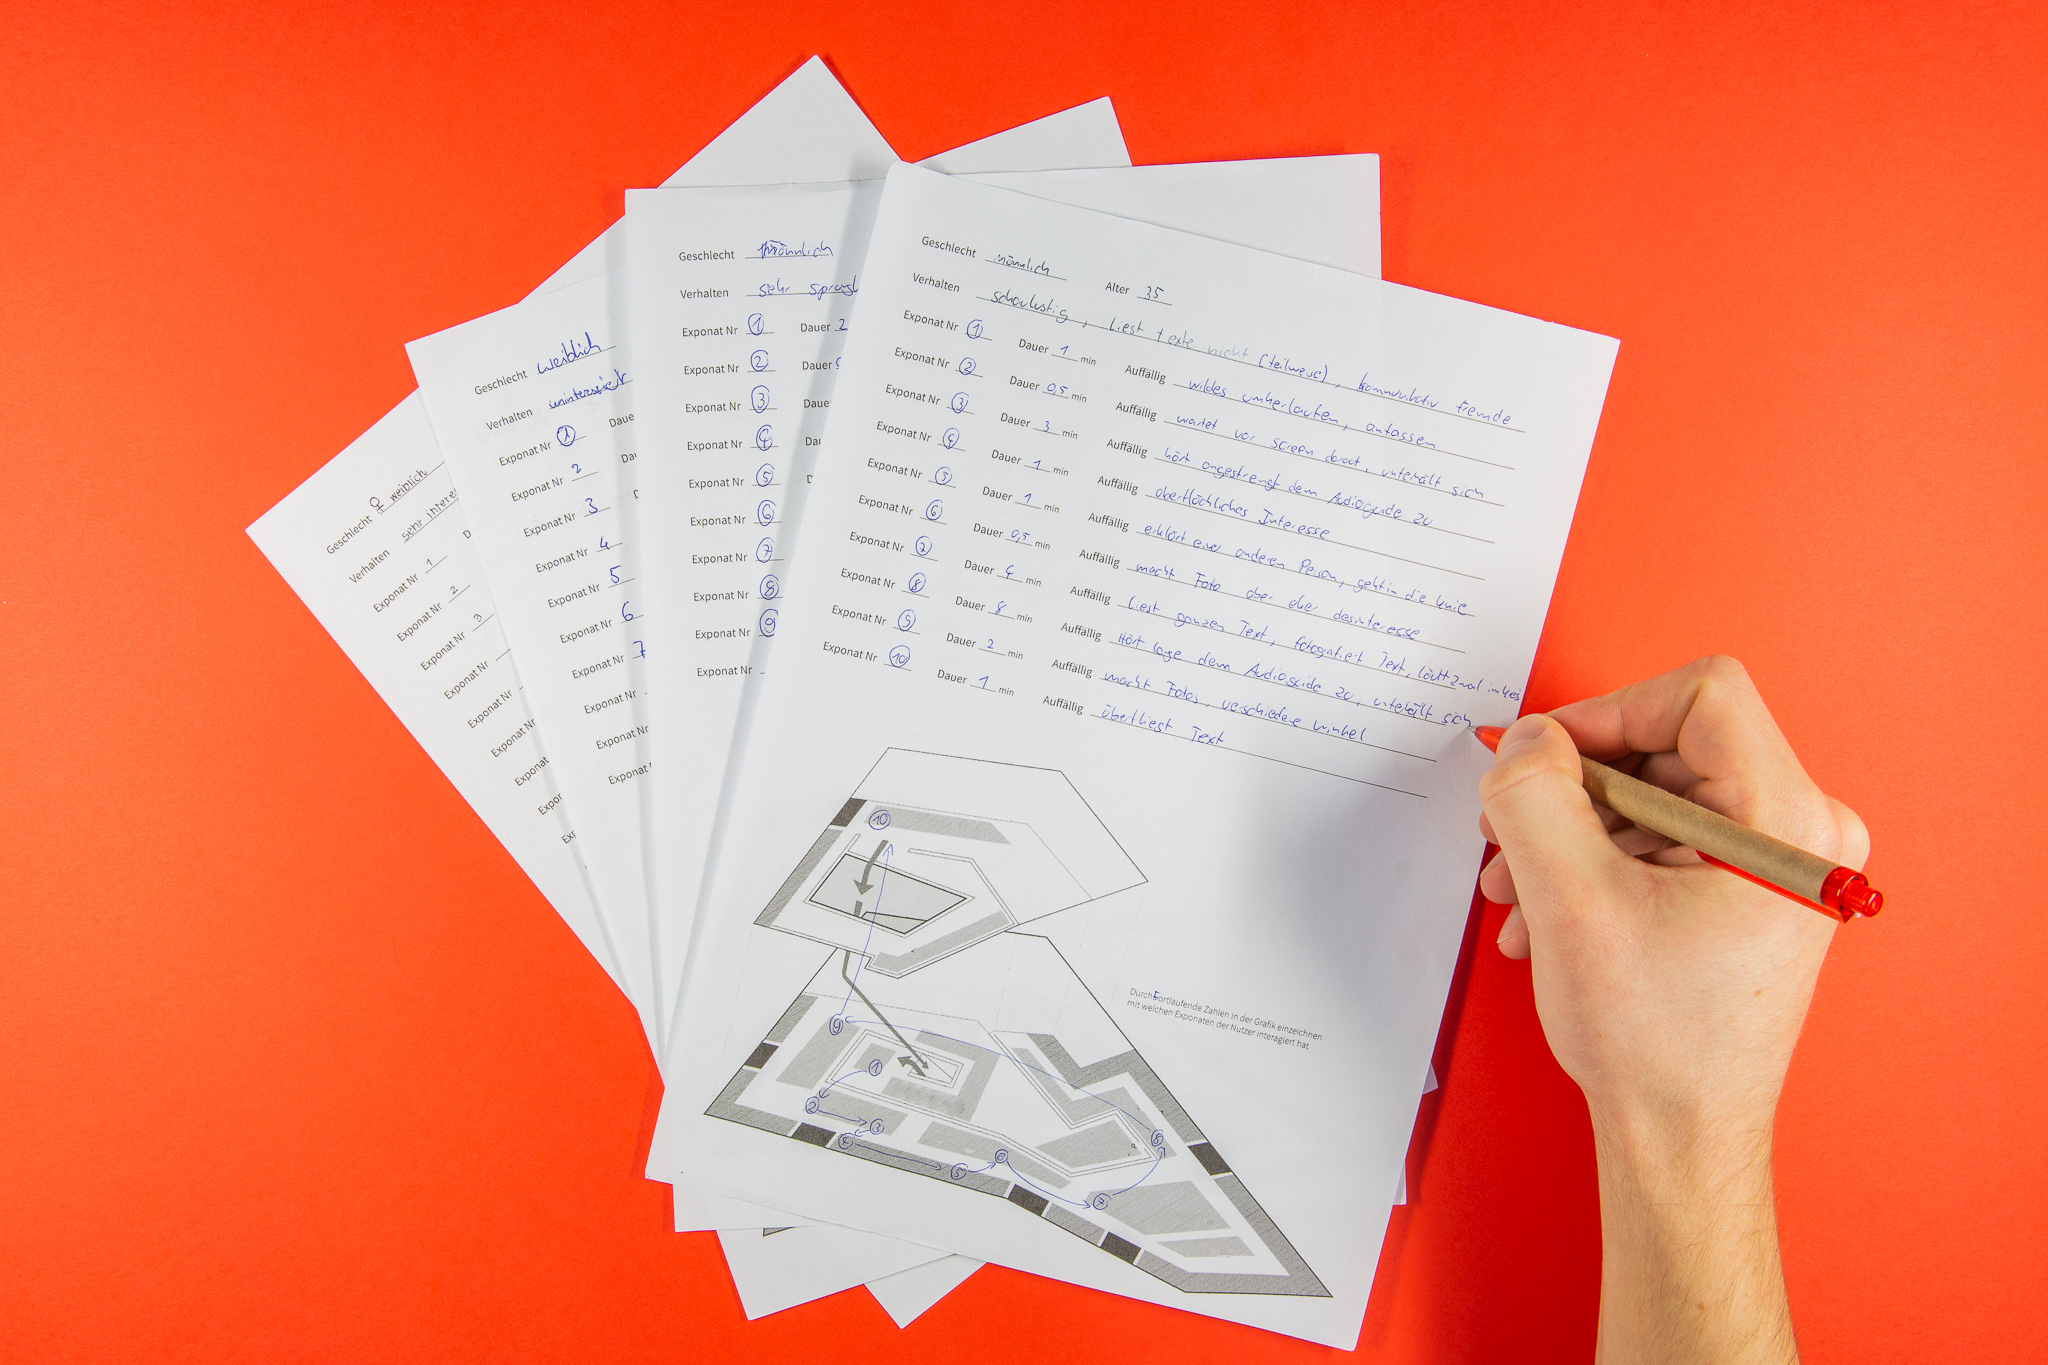 Geschlecht ♀ weiblich
Verhalten sehr
Exponat Nr 1
Exponat Nr 2
Exponat Nr 3
Exponat Nr
Exponat Nr
Exponat Nr
Geschlecht weiblich
Verhalten uninteressiert
Exponat Nr 1 Dauer
Exponat Nr 2
Exponat Nr 3
Exponat Nr 4
Exponat Nr 5
Exponat Nr 6
Exponat Nr 7
Exponat Nr
Exponat Nr
Exponat
Geschlecht männlich
Verhalten sehr
Exponat Nr 1 Dauer 2
Exponat Nr 2 Dauer
Exponat Nr 3
Exponat Nr 4
Exponat Nr 5
Exponat Nr 6
Exponat Nr 7
Exponat Nr 8
Exponat Nr 9
Exponat Nr
Geschlecht männlich Alter 35
Verhalten schaulustig, liest texte nicht (teilweise), kommunikativ fremde
Exponat Nr 1 Dauer 1 min Auffällig wildes umherlaufen, anfassen
Exponat Nr 2 Dauer 0,5 min Auffällig wartet vor screen darauf, unterhält sich
Exponat Nr 3 Dauer 3 min Auffällig hört angestrengt dem Audioguide zu
Exponat Nr 4 Dauer 1 min Auffällig oberflächliches Interesse
Exponat Nr 5 Dauer 1 min Auffällig erklärt einer anderen Person, geht in die knie
Exponat Nr 6 Dauer 0,5 min Auffällig macht Foto aber eher desinteresse
Exponat Nr 7 Dauer 4 min Auffällig liest ganzen Text, fotografiert Text, läuft 2 mal im kreis
Exponat Nr 8 Dauer 8 min Auffällig Hört lage dem Audioguide zu, unterhält sich
Exponat Nr 9 Dauer 2 min Auffällig macht Fotos, verschiedene winkel
Exponat Nr 10 Dauer 1 min Auffällig überfliegt Text
10
9
1
2
3
4
5
6
7
8
Durch Fortlaufende Zahlen in der Grafik einzeichnen
mit welchen Exponaten der Nutzer interagiert hat